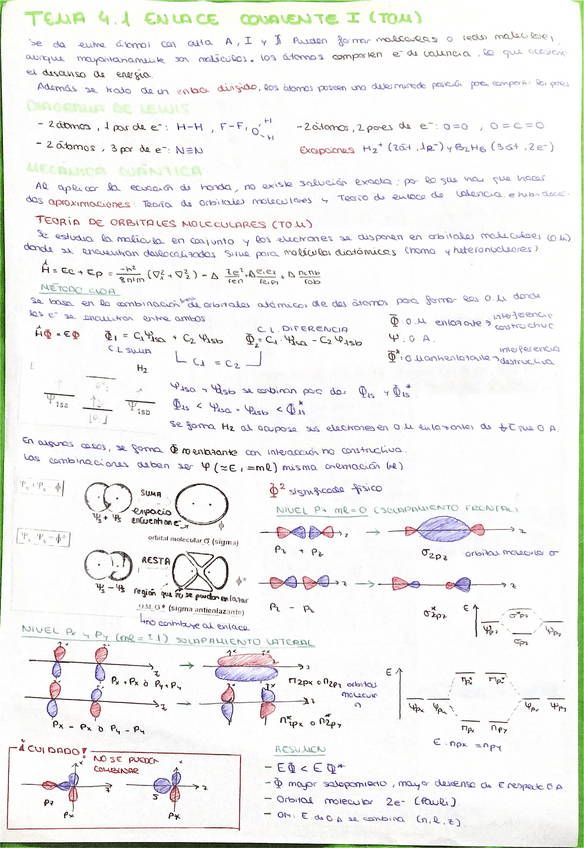 TEMA 4.1 ENLACE COVALENTE I (TOM)
Se da entre átomos con alta A, I y Pueden formar moléculas o redes molecular,
aunque mayoritariamente son moléculas. los átomos comparten e⁻ de valencia, lo que
el descenso de energía.
Además se trata de un enlace dirigido, los átomos poseen una determinada posición para compartir los pares
DIAGRAMA DE LEWIS
- 2 átomos, 1 par de e⁻: H-H, F-F, O H H
- 2 átomos, 2 pares de e⁻: O=O, O=C=O
- 2 átomos, 3 par de e⁻: N≡N
Excepciones H₂⁺ (2at, 1e⁻) y B₂H₆ (3at, 2e⁻)
MECÁNICA CUÁNTICA
Al aplicar la ecuación de honda, no existe solución exacta: por lo que hay que hacer
dos aproximaciones: Teoría de orbitales moleculares y Teoría de enlace de Valencia e
TEORÍA DE ORBITALES MOLECULARES (TOM)
Se estudia la molécula en conjunto y los electrones se disponen en orbitales moleculares (O.M)
donde se encuentran deslocalizados Sirve para moléculas diatómicas (homo y heteronucleares)
Ĥ = Ec + Ep =
MÉTODO CLOA
Se basa en la combinación de orbitales atómicos de dos átomos para formar los O.M donde
los e⁻ se encuentran entre ambos
C.L. DIFERENCIA
ĤΦ = EΦ Φ₁ = C₁Ψ1sa + C₂Ψ1sb Φ₂ = C₁Ψ1sa - C₂Ψ1sb
C.L SUMA
C₁ = C₂
Φ O.M enlazante → interferencia constructiva
Ψ O.A.
Φ* O.M antienlazante → interferencia destructiva
H₂
Ψ1sa Ψ1sb
Ψ1sa y Ψ1sb se combinan para dar Φ1s y Φ1s*
Φ1s < Ψ1sa = Ψ1sb < Φ1s*
Se forma H₂ al ocuparse sus electrones en O.M enlazantes de ↓E que O.A.
En algunos casos, se forma Φ no enlazante con interacción no constructiva.
Las combinaciones deben ser Ψ (≈E, = ml) misma orientación
SUMA
espacio
encuentran e⁻
orbital molecular σ (sigma)
RESTA
región que no se pueden enlazar
O.M σ* (sigma antienlazante)
↳ no contribuye al enlace
Φ² significado físico
NIVEL Pz ml=0 (SOLAPAMIENTO FRONTAL)
Pz + Pz
σ2pz
orbital molecular σ
Pz - Pz
σ*2pz
NIVEL Px y Py (ml=±1) SOLAPAMIENTO LATERAL
Px + Px ó Py + Py
π2px o π2py orbital molecular π
Px - Px ó Py - Py
π*2px o π*2py
E πpx = πpy
¡CUIDADO!
NO SE PUEDEN
COMBINAR
Pz Px
S Px
RESUMEN
- EΦ < EΦ*
- Φ mayor solapamiento, mayor descenso de E respecto O.A
- Orbital molecular 2e⁻ (Pauli)